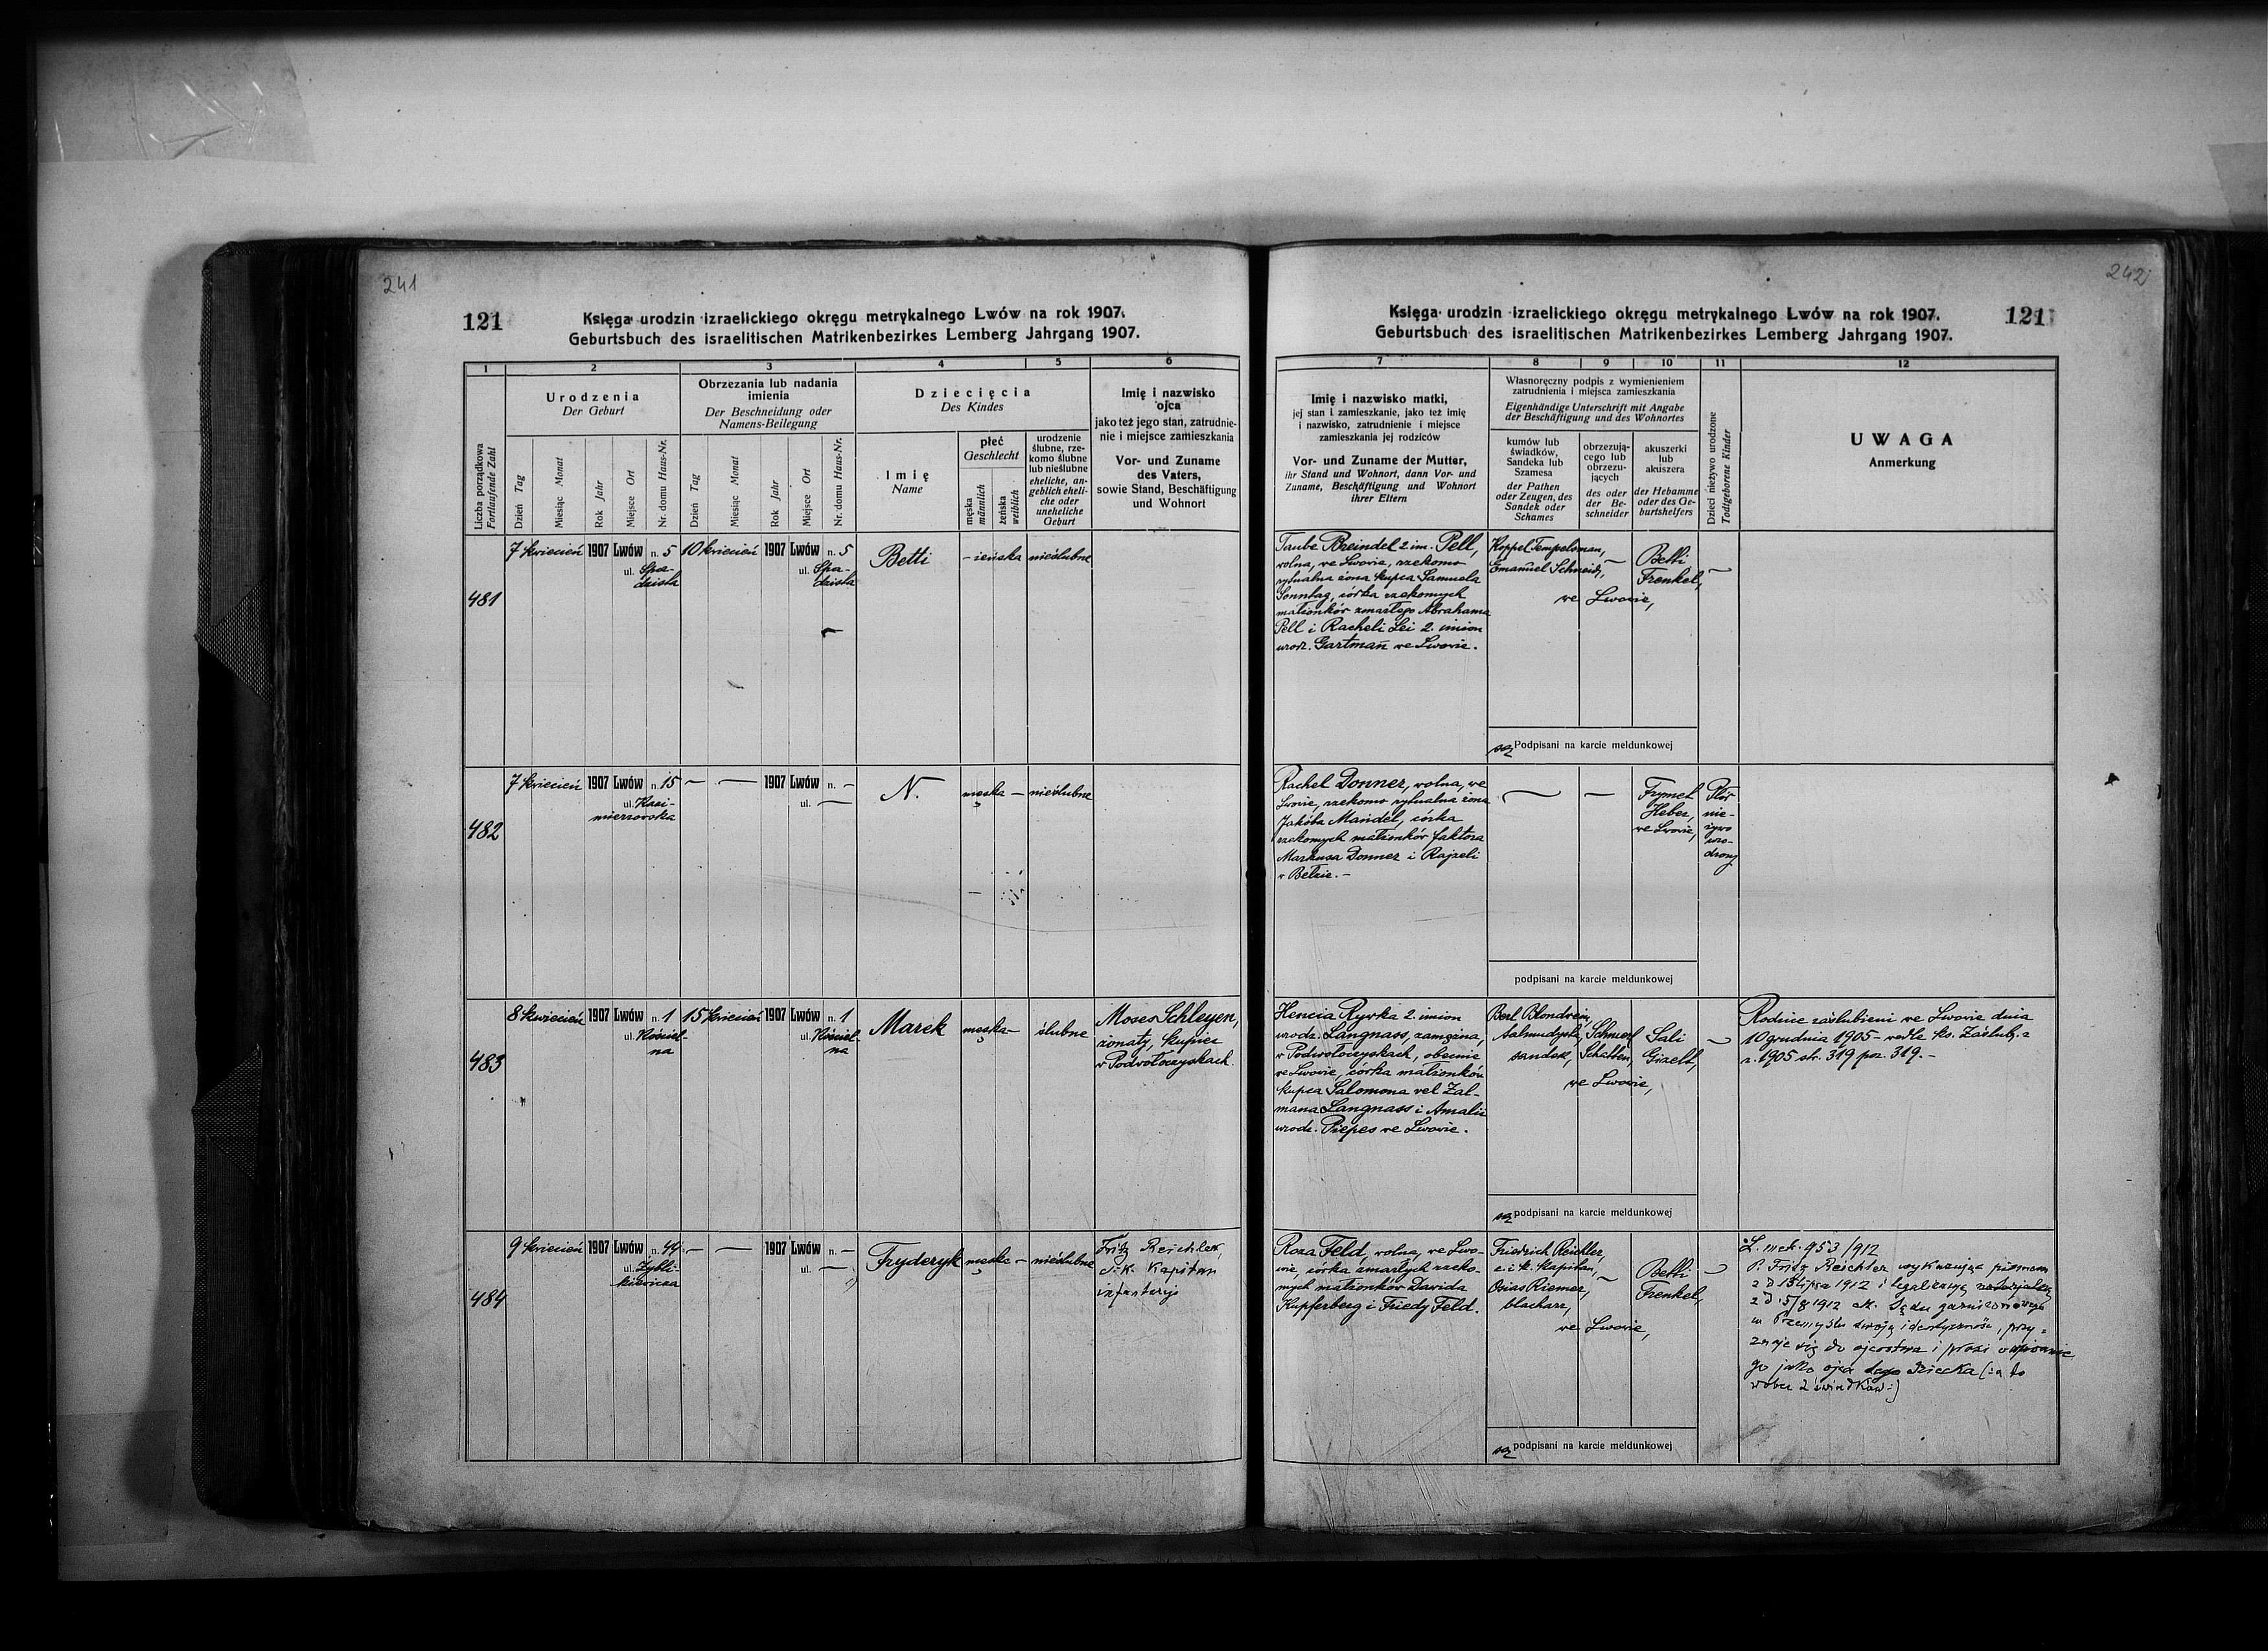 241
121
Księga urodzin izraelickiego okręgu metrykalnego Lwów na rok 1907.
Geburtsbuch des israelitischen Matrikenbezirkes Lemberg Jahrgang 1907.
1 2 3 4 5 6
Liczba porządkowa
Fortlaufende Zahl
Urodzenia
Der Geburt
Dzień Tag
Miesiąc Monat
Rok Jahr
Miejsce Ort
Nr. domu Haus-Nr.
Obrzezania lub nadania
imienia
Der Beschneidung oder
Namens-Beilegung
Dzień Tag
Miesiąc Monat
Rok Jahr
Miejsce Ort
Nr. domu Haus-Nr.
Dziecięcia
Des Kindes
Imię
Name
płeć
Geschlecht
męska
männlich
żeńska
weiblich
urodzenie
ślubne, rze-
komo ślubne
lub nieślubne
eheliche, an-
geblich eheli-
che oder
uneheliche
Geburt
Imię i nazwisko
ojca
jako też jego stan, zatrudnie-
nie i miejsce zamieszkania
Vor- und Zuname
des Vaters,
sowie Stand, Beschäftigung
und Wohnort
481
7 kwiecień 1907 Lwów n. 5
ul. Spa-
dzista
10 kwiecień 1907 Lwów n. 5
ul. Spa-
dzista
Betti
- żeńska
nieślubne
482
7 kwiecień 1907 Lwów n. 15
ul. Kazi-
mierzowska
— — 1907 Lwów n. —
ul. —
N.
męska —
nieślubne
483
8 kwiecień 1907 Lwów n. 1
ul. Kościel-
na
15 kwiecień 1907 Lwów n. 1
ul. Kościel-
na
Marek
męska —
ślubne
Moses Schleyen,
żonaty, kupiec
w Podwołoczyskach.
484
9 kwiecień 1907 Lwów n. 44
ul. Zybli-
kiewicza
— — 1907 Lwów n. —
ul. —
Fryderyk
męska —
nieślubne
Fritz Reichler,
c. i k. Kapitan
infanteryi
242
121
Księga urodzin izraelickiego okręgu metrykalnego Lwów na rok 1907.
Geburtsbuch des israelitischen Matrikenbezirkes Lemberg Jahrgang 1907.
7 8 9 10 11 12
Imię i nazwisko matki,
jej stan i zamieszkanie, jako też imię
i nazwisko, zatrudnienie i miejsce
zamieszkania jej rodziców
Vor- und Zuname der Mutter,
ihr Stand und Wohnort, dann Vor- und
Zuname, Beschäftigung und Wohnort
ihrer Eltern
Własnoręczny podpis z wymienieniem
zatrudnienia i miejsca zamieszkania
Eigenhändige Unterschrift mit Angabe
der Beschäftigung und des Wohnortes
kumów lub
świadków,
Sandeka lub
Szamesa
der Pathen
oder Zeugen, des
Sandek oder
Schames
obrzezują-
cego lub
obrzezu-
jących
des oder
der Be-
schneider
akuszerki
lub
akuszera
der Hebamme
oder des Ge-
burtshelfers
Dzieci nieżywo urodzone
Todtgeborene Kinder
UWAGA
Anmerkung
Taube Breindel 2 im. Pell,
wolna, we Lwowie, rzekomo
rytualna żona kupca Samuela
Sonntag, córka rzekomych
małżonków zmarłego Abrahama
Pell i Racheli Lei 2. imion
urodz. Gartman we Lwowie.
Koppel Tempelsman,
Emanuel Schneid,
—
Betti
Frenkel,
we Lwowie,
—
są Podpisani na karcie meldunkowej
Rachel Donner, wolna, we
Lwowie, rzekomo rytualna żona
Jakóba Mandel, córka
rzekomych małżonków faktora
Markusa Donner i Rajzeli
w Bełzie. —
— —
Frymet
Heber,
we Lwowie,
Płór
nie-
żywo
uro-
dzony
podpisani na karcie meldunkowej
Hencia Rywka 2 imion
urodz. Langnass, zamężna,
w Podwołoczyskach, obecnie
we Lwowie, córka małżonków
kupca Salomona vel Zal-
mana Langnass i Amalii
urodz. Piepes we Lwowie.
Berl Blondrein,
talmudysta,
sandek,
Schmuel
Schatten,
Sali
Gizelt,
we Lwowie,
—
Rodzice zaślubieni we Lwowie dnia
10 grudnia 1905 wedle ks. Zaślub. z
r. 1905 str. 319 poz. 319. —
są podpisani na karcie meldunkowej
Roza Feld, wolna, we Lwo-
wie, córka zmarłych rzeko-
mych małżonków Dawida
Kupferberg i Friedy Feld.
Friedrich Reichler,
c. i k. kapitan,
Osias Riemer,
blacharz,
—
Betti
Frenkel,
we Lwowie,
—
L. mek. 953/912
P. Fritz Reichler wykazując pismem
z d 15 lipca 1912 i legalizacyą
z d. 5/8 1912 ck. Sądu garnizonowego
w Przemyślu swoją identyczność, przy-
znaje się do ojcostwa i prosi o wpisanie
go jako ojca tego dziecka (:a to
wobec 2 świadków:)
są podpisani na karcie meldunkowej